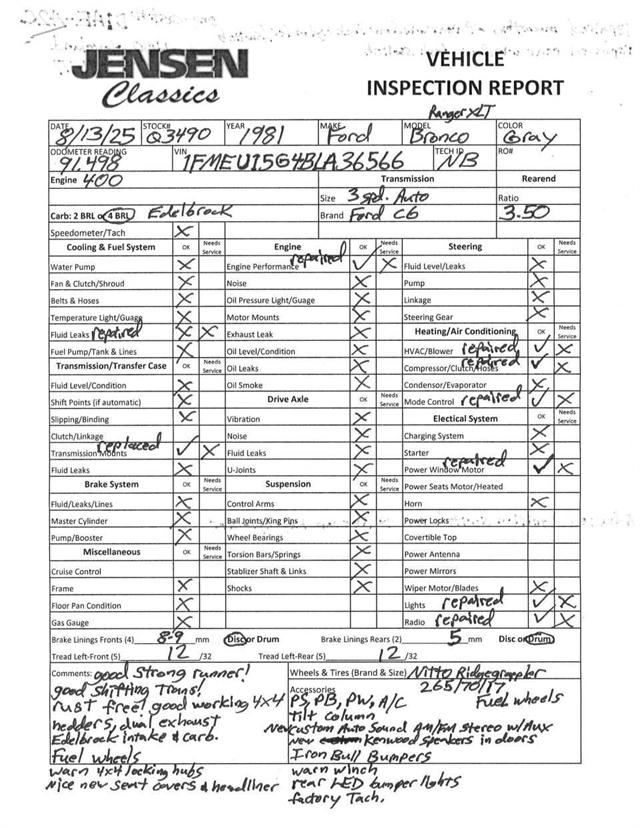 JENSEN
Classics
VEHICLE
INSPECTION REPORT
Ranger XLT
DATE 8/13/25 STOCK# Q3490 YEAR 1981 MAKE Ford MODEL Bronco COLOR Gray
ODOMETER READING 91,498 VIN 1FMEU15G4BLA36566 TECH ID NB RO#
Engine 400 Transmission Rearend
Size 3 spd. Auto Ratio
Carb: 2 BRL or 4 BRL Edelbrock Brand Ford C6 3.50
Speedometer/Tach X
Cooling & Fuel System OK Needs Service Engine OK Needs Service Steering OK Needs Service
Water Pump X Engine Performance repaired ✓ X Fluid Level/Leaks X
Fan & Clutch/Shroud X Noise X Pump X
Belts & Hoses X Oil Pressure Light/Guage X Linkage X
Temperature Light/Guage X Motor Mounts X Steering Gear X
Fluid Leaks repaired X X Exhaust Leak X Heating/Air Conditioning OK Needs Service
Fuel Pump/Tank & Lines X Oil Level/Condition X HVAC/Blower repaired ✓ X
Transmission/Transfer Case OK Needs Service Oil Leaks X Compressor/Clutch/Hoses repaired ✓ X
Fluid Level/Condition X Oil Smoke X Condensor/Evaporator X
Shift Points (if automatic) X Drive Axle OK Needs Service Mode Control repaired ✓ X
Slipping/Binding X Vibration X Electical System OK Needs Service
Clutch/Linkage Noise X Charging System X
Transmission Mounts replaced ✓ X Fluid Leaks X Starter X
Fluid Leaks X U-Joints X Power Window Motor repaired ✓ X
Brake System OK Needs Service Suspension OK Needs Service Power Seats Motor/Heated
Fluid/Leaks/Lines X Control Arms X Horn X
Master Cylinder X Ball Joints/King Pins X Power Locks
Pump/Booster X Wheel Bearings X Covertible Top
Miscellaneous OK Needs Service Torsion Bars/Springs X Power Antenna
Cruise Control Stablizer Shaft & Links X Power Mirrors
Frame X Shocks X Wiper Motor/Blades X
Floor Pan Condition X Lights repaired ✓ X
Gas Gauge X Radio repaired ✓ X
Brake Linings Fronts (4) 8-9 mm Disc or Drum Brake Linings Rears (2) 5 mm Disc or Drum
Tread Left-Front (5) 12 /32 Tread Left-Rear (5) 12 /32
Comments: good Strong runner!
good Shifting Trans!
rust free! good working 4x4
hedders, dual exhaust
Edelbrock intake & carb.
Fuel wheels
warn 4x4 locking hubs
Nice new seat covers & headliner
Wheels & Tires (Brand & Size) Nitto Ridgegrappler
265/70/17
Fuel wheels
Accessories
PS, PB, PW, A/C
tilt column
New Custom Auto Sound AM/FM stereo w/Aux
new Kenwood speakers in doors
Iron Bull Bumpers
warn winch
rear LED bumper lights
factory Tach.